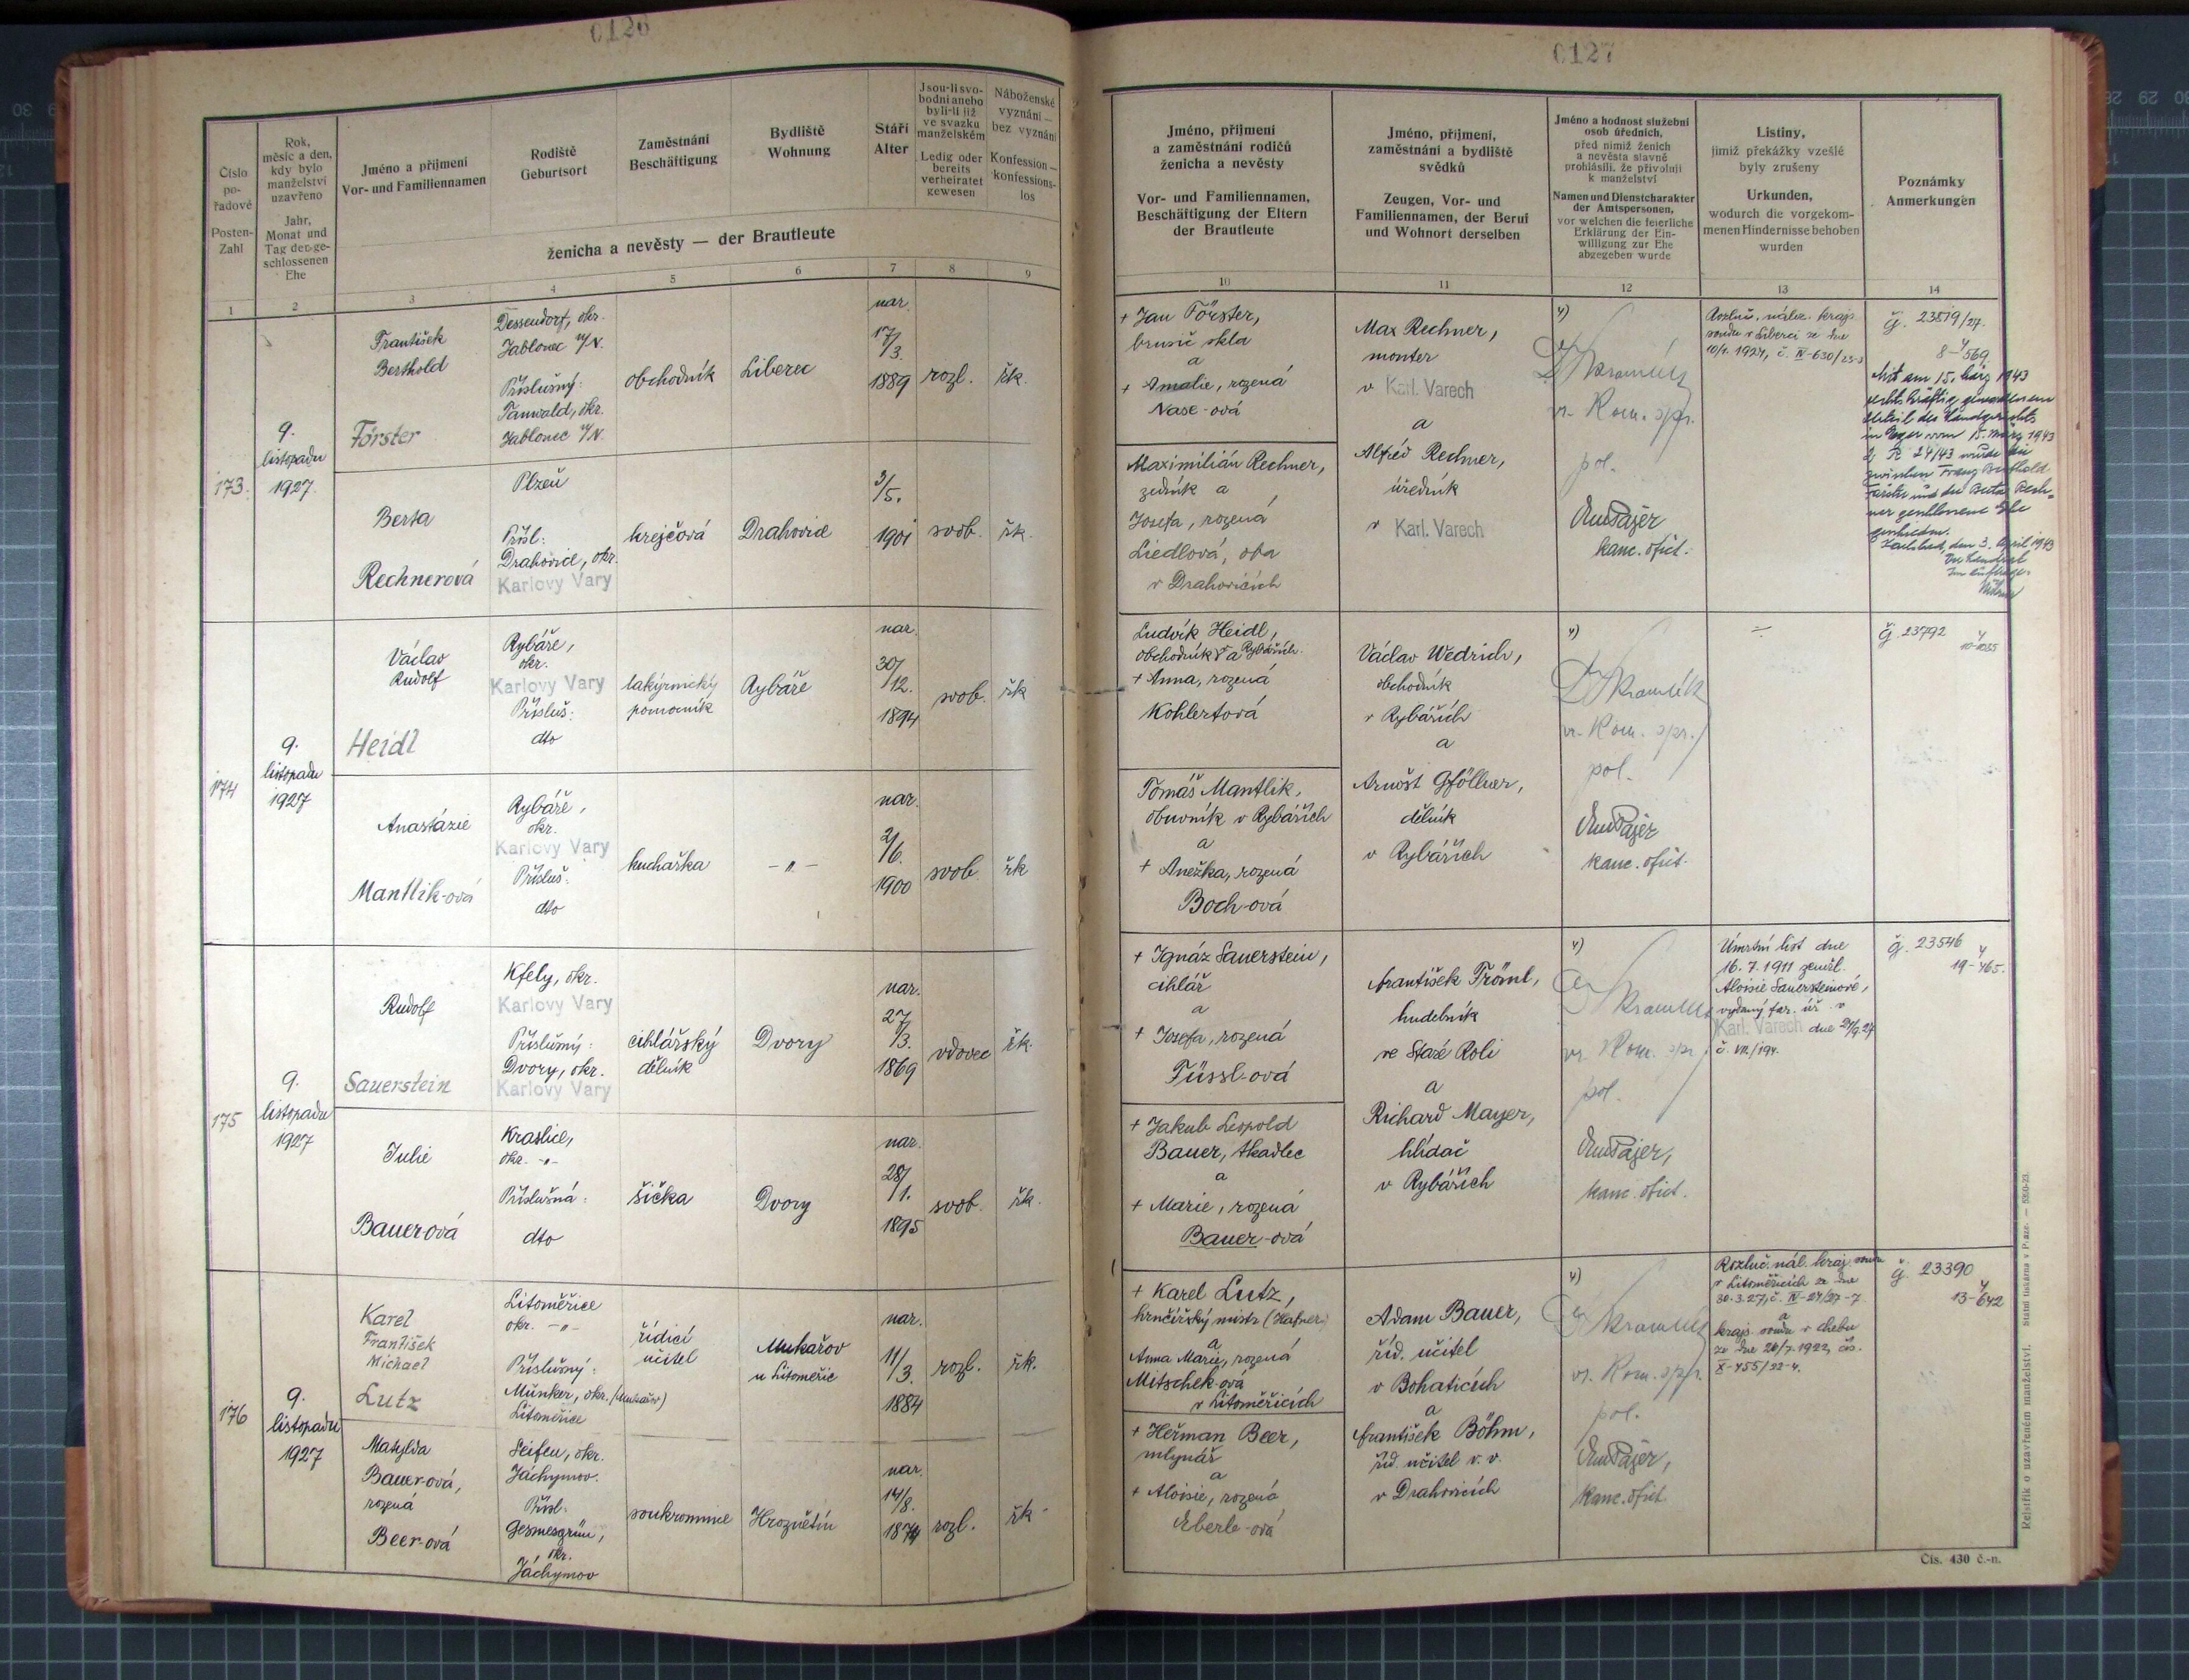 0126
Číslo
po-
řadové
Posten-
Zahl
Rok,
měsíc a den,
kdy bylo
manželství
uzavřeno
Jahr,
Monat und
Tag der ge-
schlossenen
Ehe
Jméno a příjmení
Vor- und Familiennamen
Rodiště
Geburtsort
Zaměstnání
Beschäftigung
Bydliště
Wohnung
Stáří
Alter
Jsou-li svo-
bodni anebo
byli-li již
ve svazku
manželském
Ledig oder
bereits
verheiratet
gewesen
Náboženské
vyznání —
bez vyznání
Konfession —
konfessions-
los
ženicha a nevěsty — der Brautleute
1
2
3
4
5
6
7
8
9
173.
9.
listopadu
1927.
František
Berthold
Förster
Dessendorf, okr.
Jablonec n/N.
Příslušný:
Tanwald, okr.
Jablonec n/N.
obchodník
Liberec
nar.
17/3.
1889
rozl.
řk.
Berta
Rechnerová
Plzeň
Přísl:
Drahovice, okr.
Karlovy Vary
krejčová
Drahovice
3/5.
1901
svob.
řk.
174
9.
listopadu
1927
Václav
Rudolf
Heidl
Rybáře,
okr.
Karlovy Vary
Přísluš:
dto
lakýrnický
pomocník
Rybáře
nar.
30/12.
1894
svob.
řk
Anastázie
Mantlik-ová
Rybáře,
okr.
Karlovy Vary
Přísluš:
dto
kuchařka
-"-
nar.
2/6.
1900
svob.
řk
175
9.
listopadu
1927
Rudolf
Sauerstein
Kfely, okr.
Karlovy Vary
Příslušný:
Dvory, okr.
Karlovy Vary
cihlářský
dělník
Dvory
nar.
27/3.
1869
vdovec
řk.
Julie
Bauer-ová
Kraslice,
okr. -"-
Příslušná:
dto
šička
Dvory
nar.
28/1.
1895
svob.
řk.
176
9.
listopadu
1927
Karel
František
Michael
Lutz
Litoměřice
okr. -"-
Příslušný:
Münker, okr. (Mukařov)
Litoměřice
řídící
učitel
Mukařov
u Litoměřic
nar.
11/3.
1884
rozl.
řk.
Matylda
Bauer-ová,
rozená
Beer-ová
Seifen, okr.
Jáchymov.
Přísl:
Gesmesgrün,
okr.
Jáchymov
soukromnice
Hroznětín
nar.
14/8.
1874
rozl.
řk
0127
Jméno, příjmení
a zaměstnání rodičů
ženicha a nevěsty
Vor- und Familiennamen,
Beschäftigung der Eltern
der Brautleute
Jméno, příjmení,
zaměstnání a bydliště
svědků
Zeugen, Vor- und
Familiennamen, der Beruf
und Wohnort derselben
Jméno a hodnost služební
osob úředních,
před nimiž ženich
a nevěsta slavně
prohlásili, že přivolují
k manželství
Namen und Dienstcharakter
der Amtspersonen,
vor welchen die feierliche
Erklärung der Ein-
willigung zur Ehe
abgegeben wurde
Listiny,
jimiž překážky vzešlé
byly zrušeny
Urkunden,
wodurch die vorgekom-
menen Hindernisse behoben
wurden
Poznámky
Anmerkungen
10
11
12
13
14
+ Jan Förster,
brusič skla
a
+ Amalie, rozená
Nase-ová
Maximilián Rechner,
zedník a
Josefa, rozená
Liedlová, oba
v Drahovicích
Max Rechner,
monter
v Karl. Varech
a
Alfréd Rechner,
úředník
v Karl. Varech
vr. Kom. spr.
pol.
kanc. ofict.
Rozluč. nález. krajs.
soudu v Liberci ze dne
10/1. 1924, č. IV-630/23-3
čj. 23519/27.
8-4/569
Mit am 15. März 1943
rechtskräftig gewordenem
Urteil des Landgerichts
in Eger vom 15. März 1943
2 R 24/43 wurde die
zwischen Franz Berthold
Förster und der Berta Rech-
ner geschlossene Ehe
geschieden.
Karlsbad, den 3. April 1943
Der Landrat
Im Auftrage:
Ludvík Heidl,
obchodník v Rybářích
a
+ Anna, rozená
Kohlertová
Tomáš Mantlik,
obuvník v Rybářích
a
+ Anežka, rozená
Boch-ová
Václav Wedrich,
obchodník
v Rybářích
a
Arnošt Gföllner,
dělník
v Rybářích
vr. Kom. spr.
pol.
kanc. ofict.
čj. 23792
+ Ignáz Sauerstein,
cihlář
a
+ Josefa, rozená
Füssl-ová
+ Jakub Leopold
Bauer, tkadlec
a
+ Marie, rozená
Bauer-ová
František Tröml,
hudebník
ve Staré Roli
a
Richard Mayer,
hlídač
v Rybářích
vr. Kom. spr.
pol.
kanc. ofict.
Úmrtní list dne
16. 7. 1911 zemřel.
Aloisie Sauersteinové,
vydaný far. úř. v
Karl. Varech dne 24/9. 27
č. VII./194.
čj. 23546
19-4/465.
+ Karel Lutz,
hrnčířský mistr (Hafner)
a
Anna Marie, rozená
Mitschek-ová
v Litoměřicích
+ Heřman Beer,
mlynář
a
+ Aloisie, rozená
Eberle-ová
Adam Bauer,
říd. učitel
v Bohaticích
a
František Böhm,
říd. učitel v. v.
v Drahovicích
vr. Kom. spr.
pol.
kanc. ofict.
Rozluč. nál. kraj. soudu
v Litoměřicích ze dne
30. 3. 27, č. IV-24/27-7
a
krajs. soudu v Chebu
ze dne 20/7. 1922, čís.
X-455/22-4.
čj. 23390
13-4/642
Rejstřík o uzavřeném manželství. Státní tiskárna v Praze. — 5350-23
Čís. 430 č.-n.